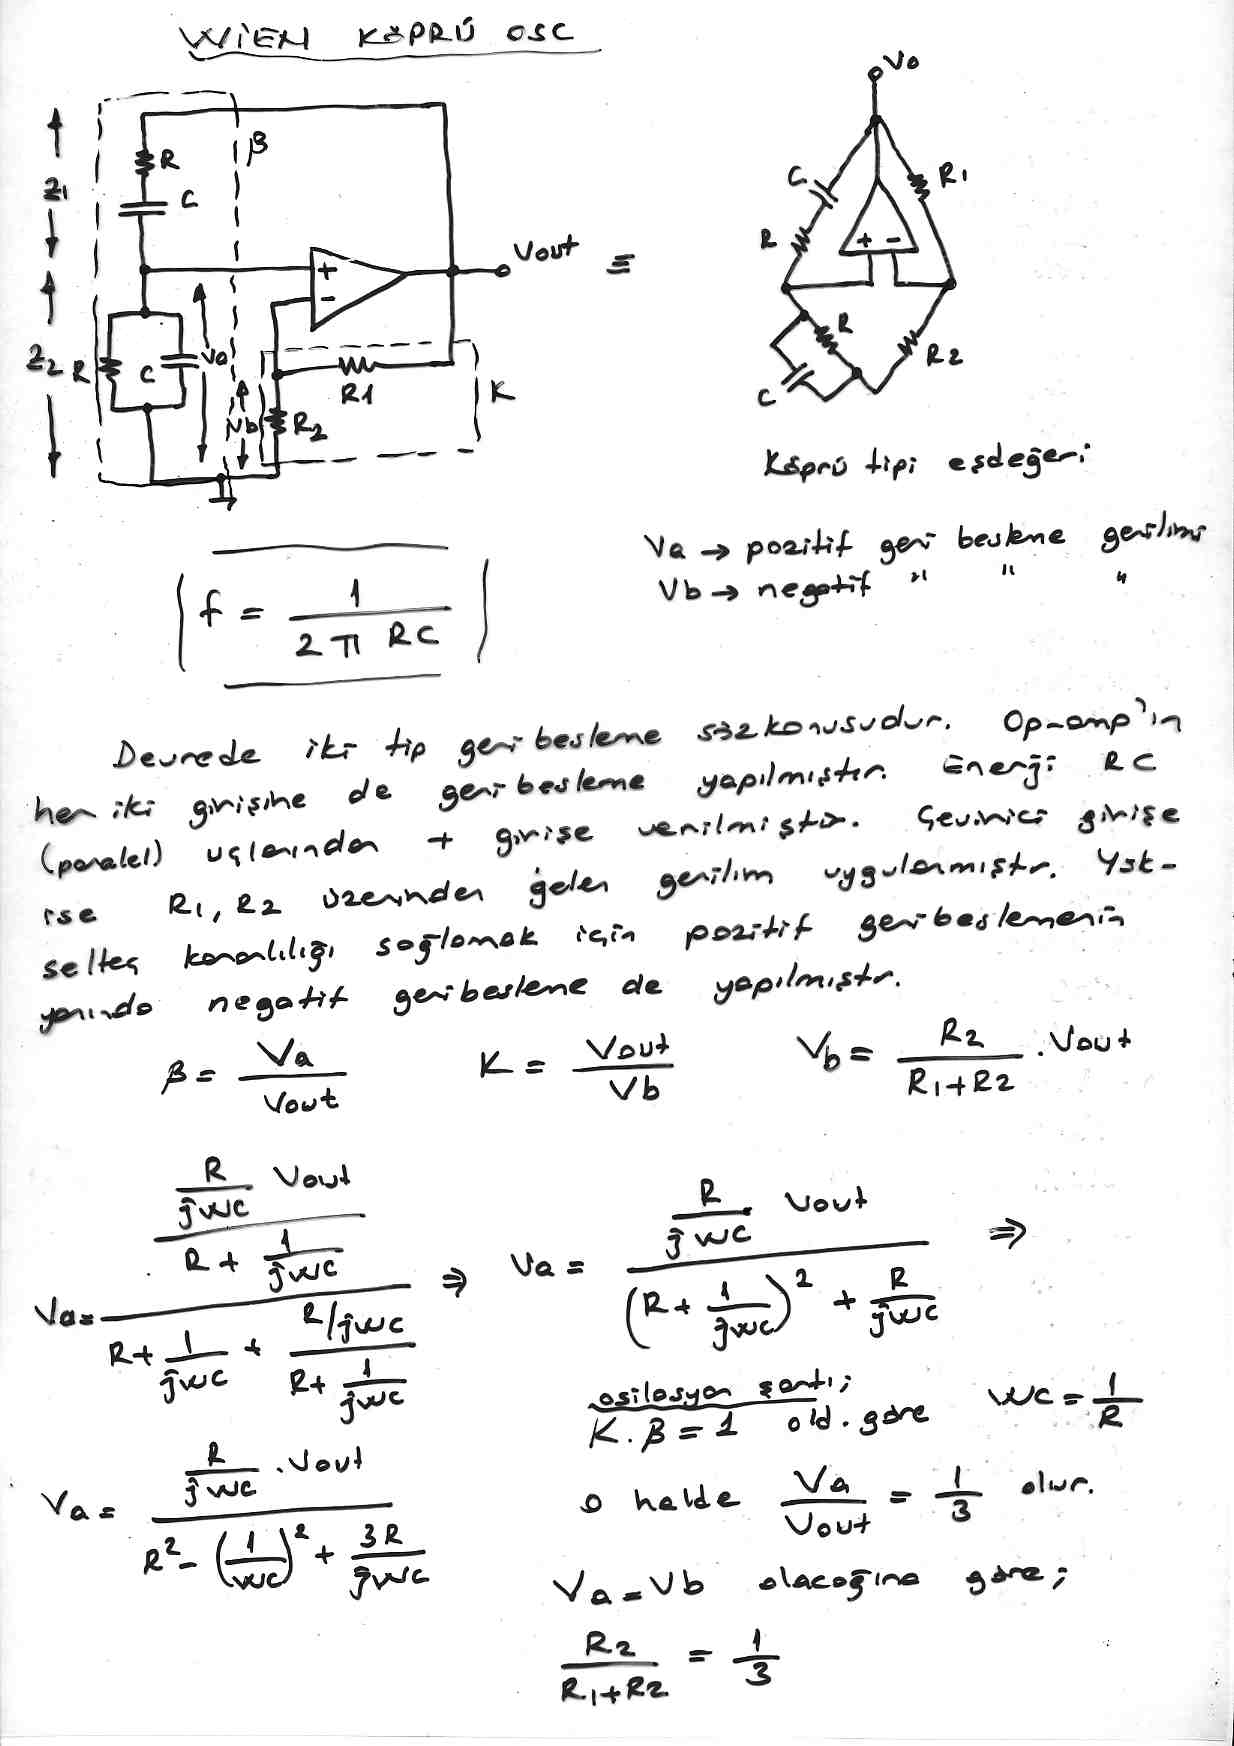 WİEN KÖPRÜ OSC
Z1
R
C
β
Z2
R
C
Va
Vb
+
-
Vout
≡
R1
R2
K
Vo
C
R
R1
+ -
R
C
R2
Köprü tipi eşdeğeri
Va → pozitif geri besleme gerilimi
Vb → negatif " " "
f = 1 / (2 π RC)
Devrede iki tip geri besleme sözkonusudur. Op-amp'ın
her iki girişine de geri besleme yapılmıştır. Enerji RC
(paralel) uçlarından + girişe verilmiştir. Çevirici girişe
ise R1, R2 üzerinden gelen gerilim uygulanmıştr. Yük-
selteç kararlılığı sağlamak için pozitif geribeslemenin
yanında negatif geribesleme de yapılmıştr.
β = Va / Vout   K = Vout / Vb   Vb = R2 / (R1+R2) . Vout
Va = ((R/jwc) Vout / (R + 1/jwc)) / (R + 1/jwc + (R/jwc) / (R + 1/jwc)) ⇒ Va = ((R/jwc) Vout) / ((R + 1/jwc)² + R/jwc) ⇒
osilasyon şartı;
K . β = 1 old. göre   wc = 1/R
Va = ((R/jwc) . Vout) / (R² - (1/wc)² + 3R/jwc)
o halde Va / Vout = 1/3 olur.
Va = Vb olacağına göre;
R2 / (R1+R2) = 1/3